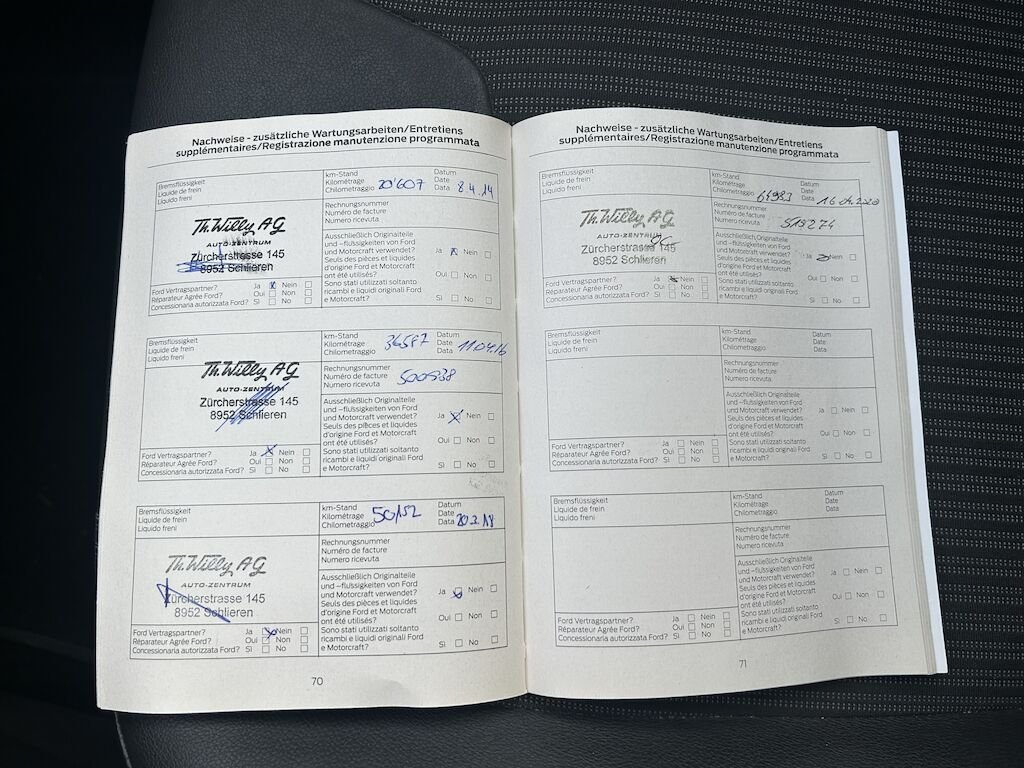 Nachweise - zusätzliche Wartungsarbeiten/Entretiens
supplémentaires/Registrazione manutenzione programmata
Bremsflüssigkeit
Liquide de frein
Liquido freni
km-Stand
Kilométrage
Chilometraggio 20'607
Datum
Date
Data 8 4. 14
Th. Willy AG
AUTO-ZENTRUM
Zürcherstrasse 145
8952 Schlieren
Rechnungsnummer
Numéro de facture
Numero ricevuta
Ausschließlich Originalteile
und -flüssigkeiten von Ford
und Motorcraft verwendet? Ja Nein
Seuls des pièces et liquides
d'origine Ford et Motorcraft
ont été utilisés? Oui Non
Sono stati utilizzati soltanto
ricambi e liquidi originali Ford
e Motorcraft? Sì No
Ford Vertragspartner? Ja Nein
Réparateur Agrée Ford? Oui Non
Concessionaria autorizzata Ford? Sì No
Bremsflüssigkeit
Liquide de frein
Liquido freni
km-Stand
Kilométrage
Chilometraggio 36587
Datum
Date
Data 11.04.16
Th. Willy AG
AUTO-ZENTRUM
Zürcherstrasse 145
8952 Schlieren
Rechnungsnummer
Numéro de facture
Numero ricevuta
500938
Ausschließlich Originalteile
und -flüssigkeiten von Ford
und Motorcraft verwendet? Ja Nein
Seuls des pièces et liquides
d'origine Ford et Motorcraft
ont été utilisés? Oui Non
Sono stati utilizzati soltanto
ricambi e liquidi originali Ford
e Motorcraft? Sì No
Ford Vertragspartner? Ja Nein
Réparateur Agrée Ford? Oui Non
Concessionaria autorizzata Ford? Sì No
Bremsflüssigkeit
Liquide de frein
Liquido freni
km-Stand
Kilométrage
Chilometraggio 50152
Datum
Date
Data 20.2.18
Th. Willy AG
AUTO-ZENTRUM
Zürcherstrasse 145
8952 Schlieren
Rechnungsnummer
Numéro de facture
Numero ricevuta
Ausschließlich Originalteile
und -flüssigkeiten von Ford
und Motorcraft verwendet? Ja Nein
Seuls des pièces et liquides
d'origine Ford et Motorcraft
ont été utilisés? Oui Non
Sono stati utilizzati soltanto
ricambi e liquidi originali Ford
e Motorcraft? Sì No
Ford Vertragspartner? Ja Nein
Réparateur Agrée Ford? Oui Non
Concessionaria autorizzata Ford? Sì No
70
Nachweise - zusätzliche Wartungsarbeiten/Entretiens
supplémentaires/Registrazione manutenzione programmata
Bremsflüssigkeit
Liquide de frein
Liquido freni
km-Stand
Kilométrage
Chilometraggio 64983
Datum
Date
Data 16.04.2020
Th. Willy AG
AUTO-ZENTRUM
Zürcherstrasse 145
8952 Schlieren
Rechnungsnummer
Numéro de facture
Numero ricevuta
519274
Ausschließlich Originalteile
und -flüssigkeiten von Ford
und Motorcraft verwendet? Ja Nein
Seuls des pièces et liquides
d'origine Ford et Motorcraft
ont été utilisés? Oui Non
Sono stati utilizzati soltanto
ricambi e liquidi originali Ford
e Motorcraft? Sì No
Ford Vertragspartner? Ja Nein
Réparateur Agrée Ford? Oui Non
Concessionaria autorizzata Ford? Sì No
Bremsflüssigkeit
Liquide de frein
Liquido freni
km-Stand
Kilométrage
Chilometraggio
Datum
Date
Data
Rechnungsnummer
Numéro de facture
Numero ricevuta
Ausschließlich Originalteile
und -flüssigkeiten von Ford
und Motorcraft verwendet? Ja Nein
Seuls des pièces et liquides
d'origine Ford et Motorcraft
ont été utilisés? Oui Non
Sono stati utilizzati soltanto
ricambi e liquidi originali Ford
e Motorcraft? Sì No
Ford Vertragspartner? Ja Nein
Réparateur Agrée Ford? Oui Non
Concessionaria autorizzata Ford? Sì No
Bremsflüssigkeit
Liquide de frein
Liquido freni
km-Stand
Kilométrage
Chilometraggio
Datum
Date
Data
Rechnungsnummer
Numéro de facture
Numero ricevuta
Ausschließlich Originalteile
und -flüssigkeiten von Ford
und Motorcraft verwendet? Ja Nein
Seuls des pièces et liquides
d'origine Ford et Motorcraft
ont été utilisés? Oui Non
Sono stati utilizzati soltanto
ricambi e liquidi originali Ford
e Motorcraft? Sì No
Ford Vertragspartner? Ja Nein
Réparateur Agrée Ford? Oui Non
Concessionaria autorizzata Ford? Sì No
71